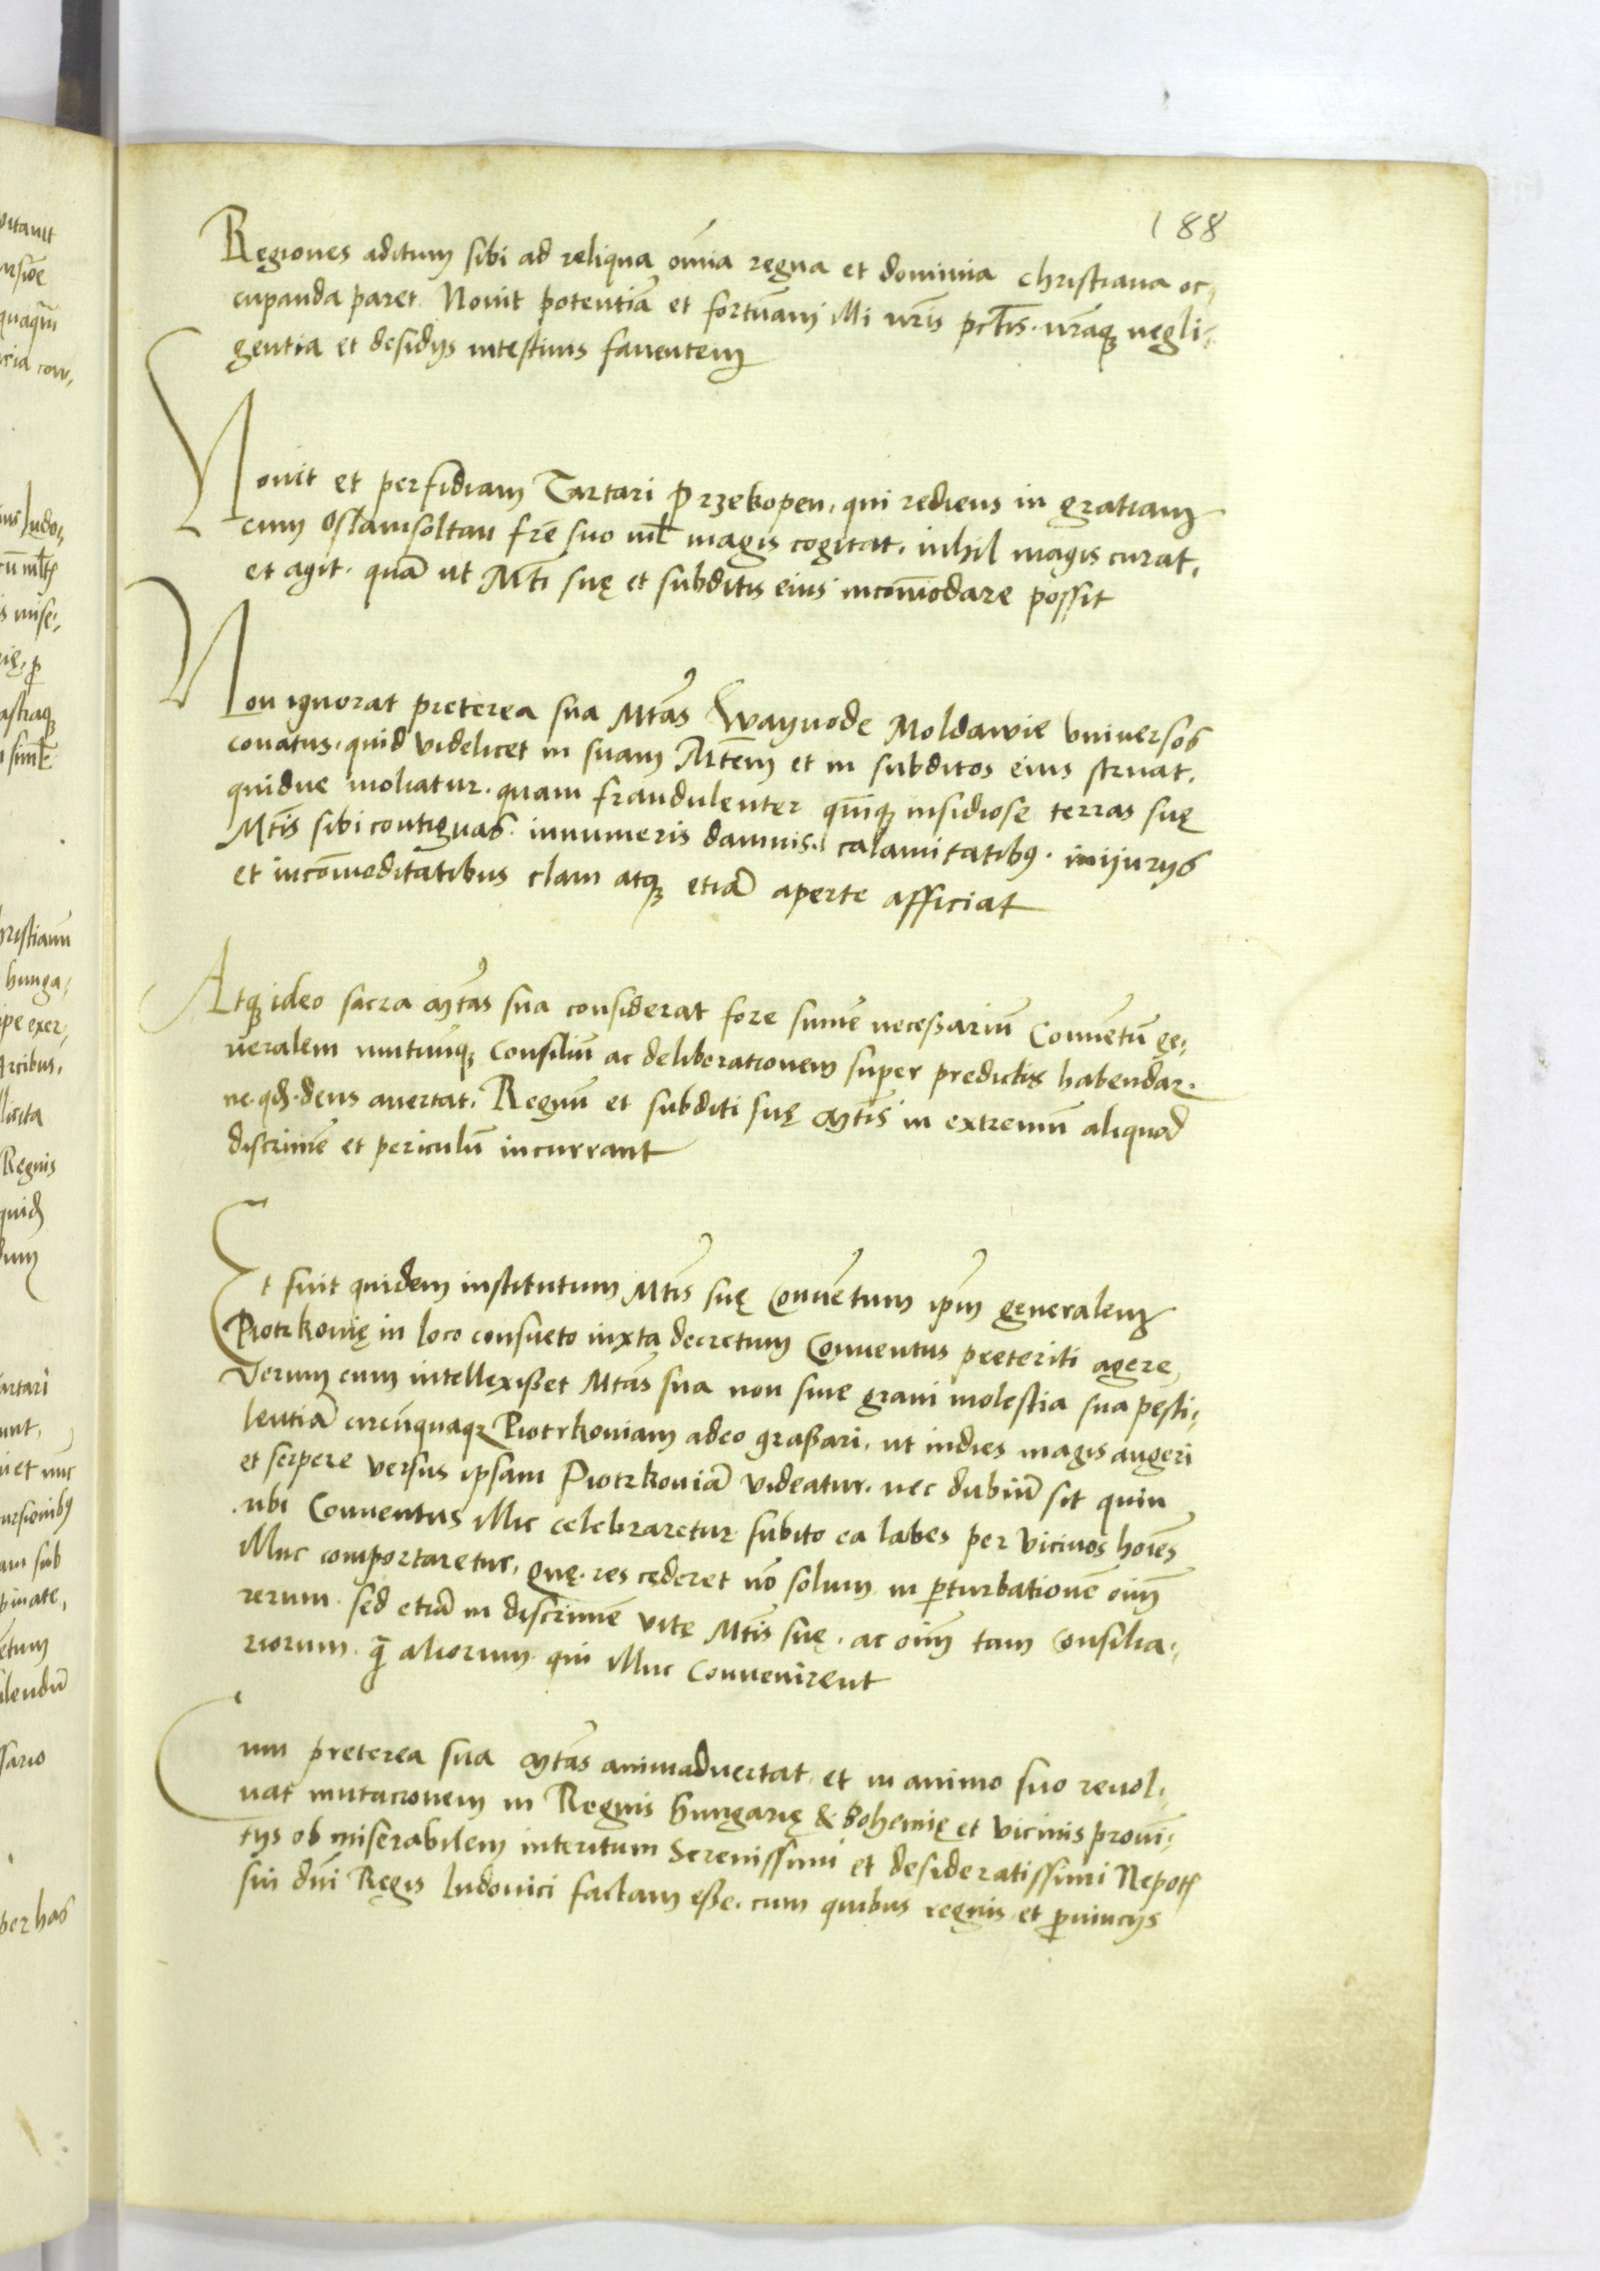 188
Regiones aditum sibi ad reliqua om̄ia regna et dominia christiana oc,
cupanda paret. Nouit potentiā et fortunam illi nr̄is pctīs. nrāq̨ negli,
gentia et desidijs intestinis fauentem
Nouit et perfidiam Tartari Przekopen, qui rediens in gratiam
cum Oslamsoltan frē suo nīl magis cogitat. nihil magis curat.
et agit. quā ut Mtī suę et subditis eius incom̄odare possit
Non ignorat preterea sua Mtās Wayuode Moldawie vniuersos
conatus. quid videlicet in suam Mtēm et in subditos eius struat.
quidue moliatur. quam fraudulenter quāq̨ insidiose terras suę
Mtīs sibi contiguas. innumeris damnis. calamitatibꝰ. inijurijs
et incom̄oditatibus clam atq̨ etiā aperte afficiat
Atq̨ ideo sacra Mtās sua considerat fore sum̄e necessariū Conuētū ge,
neralem mutuūq̨ Consiliū ac deliberationem super predictis habendar.
ne qđ. deus auertat. Regnū et subditi suę Mtīs in extremū aliquod
discrimē et periculū incurrant
Et fuit quidem institutum Mtīs suę Conuētum ip̄m generalem
Piotrkouię in loco consueto iuxta decretum Conuentus preteriti agere,
Verum cum intellexisset Mtās sua non sine graui molestia sua pesti,
lentiā circūquaq̨ Piotrkouiam adeo grassari, ut indies magis augeri
et serpere versus ipsam Piotrkouiā videatur. nec dubiū sit quin
ubi Conuentus illic celebraretur subito ea labes per vicinos hoīes
illuc comportaretur, quę res cęderet nō solum in ꝑturbationē oīm
rerum. sed etiā in discrimē vitę Mtīs suę. ac oīm tam Consilia,
riorum. q̄ aliorum. qui illuc Conuenirent
Cum preterea sua Mtās animaduertat. et in animo suo reuol,
uat mutacionem in Regnis Hungarię & Bohemię et vicinis prouī,
tijs ob miserabilem interitum Serenissimi et desideratissimi Nepotis
sui dn̄i Regis Ludouici factam esse. cum quibus regnis et ꝓuincijs